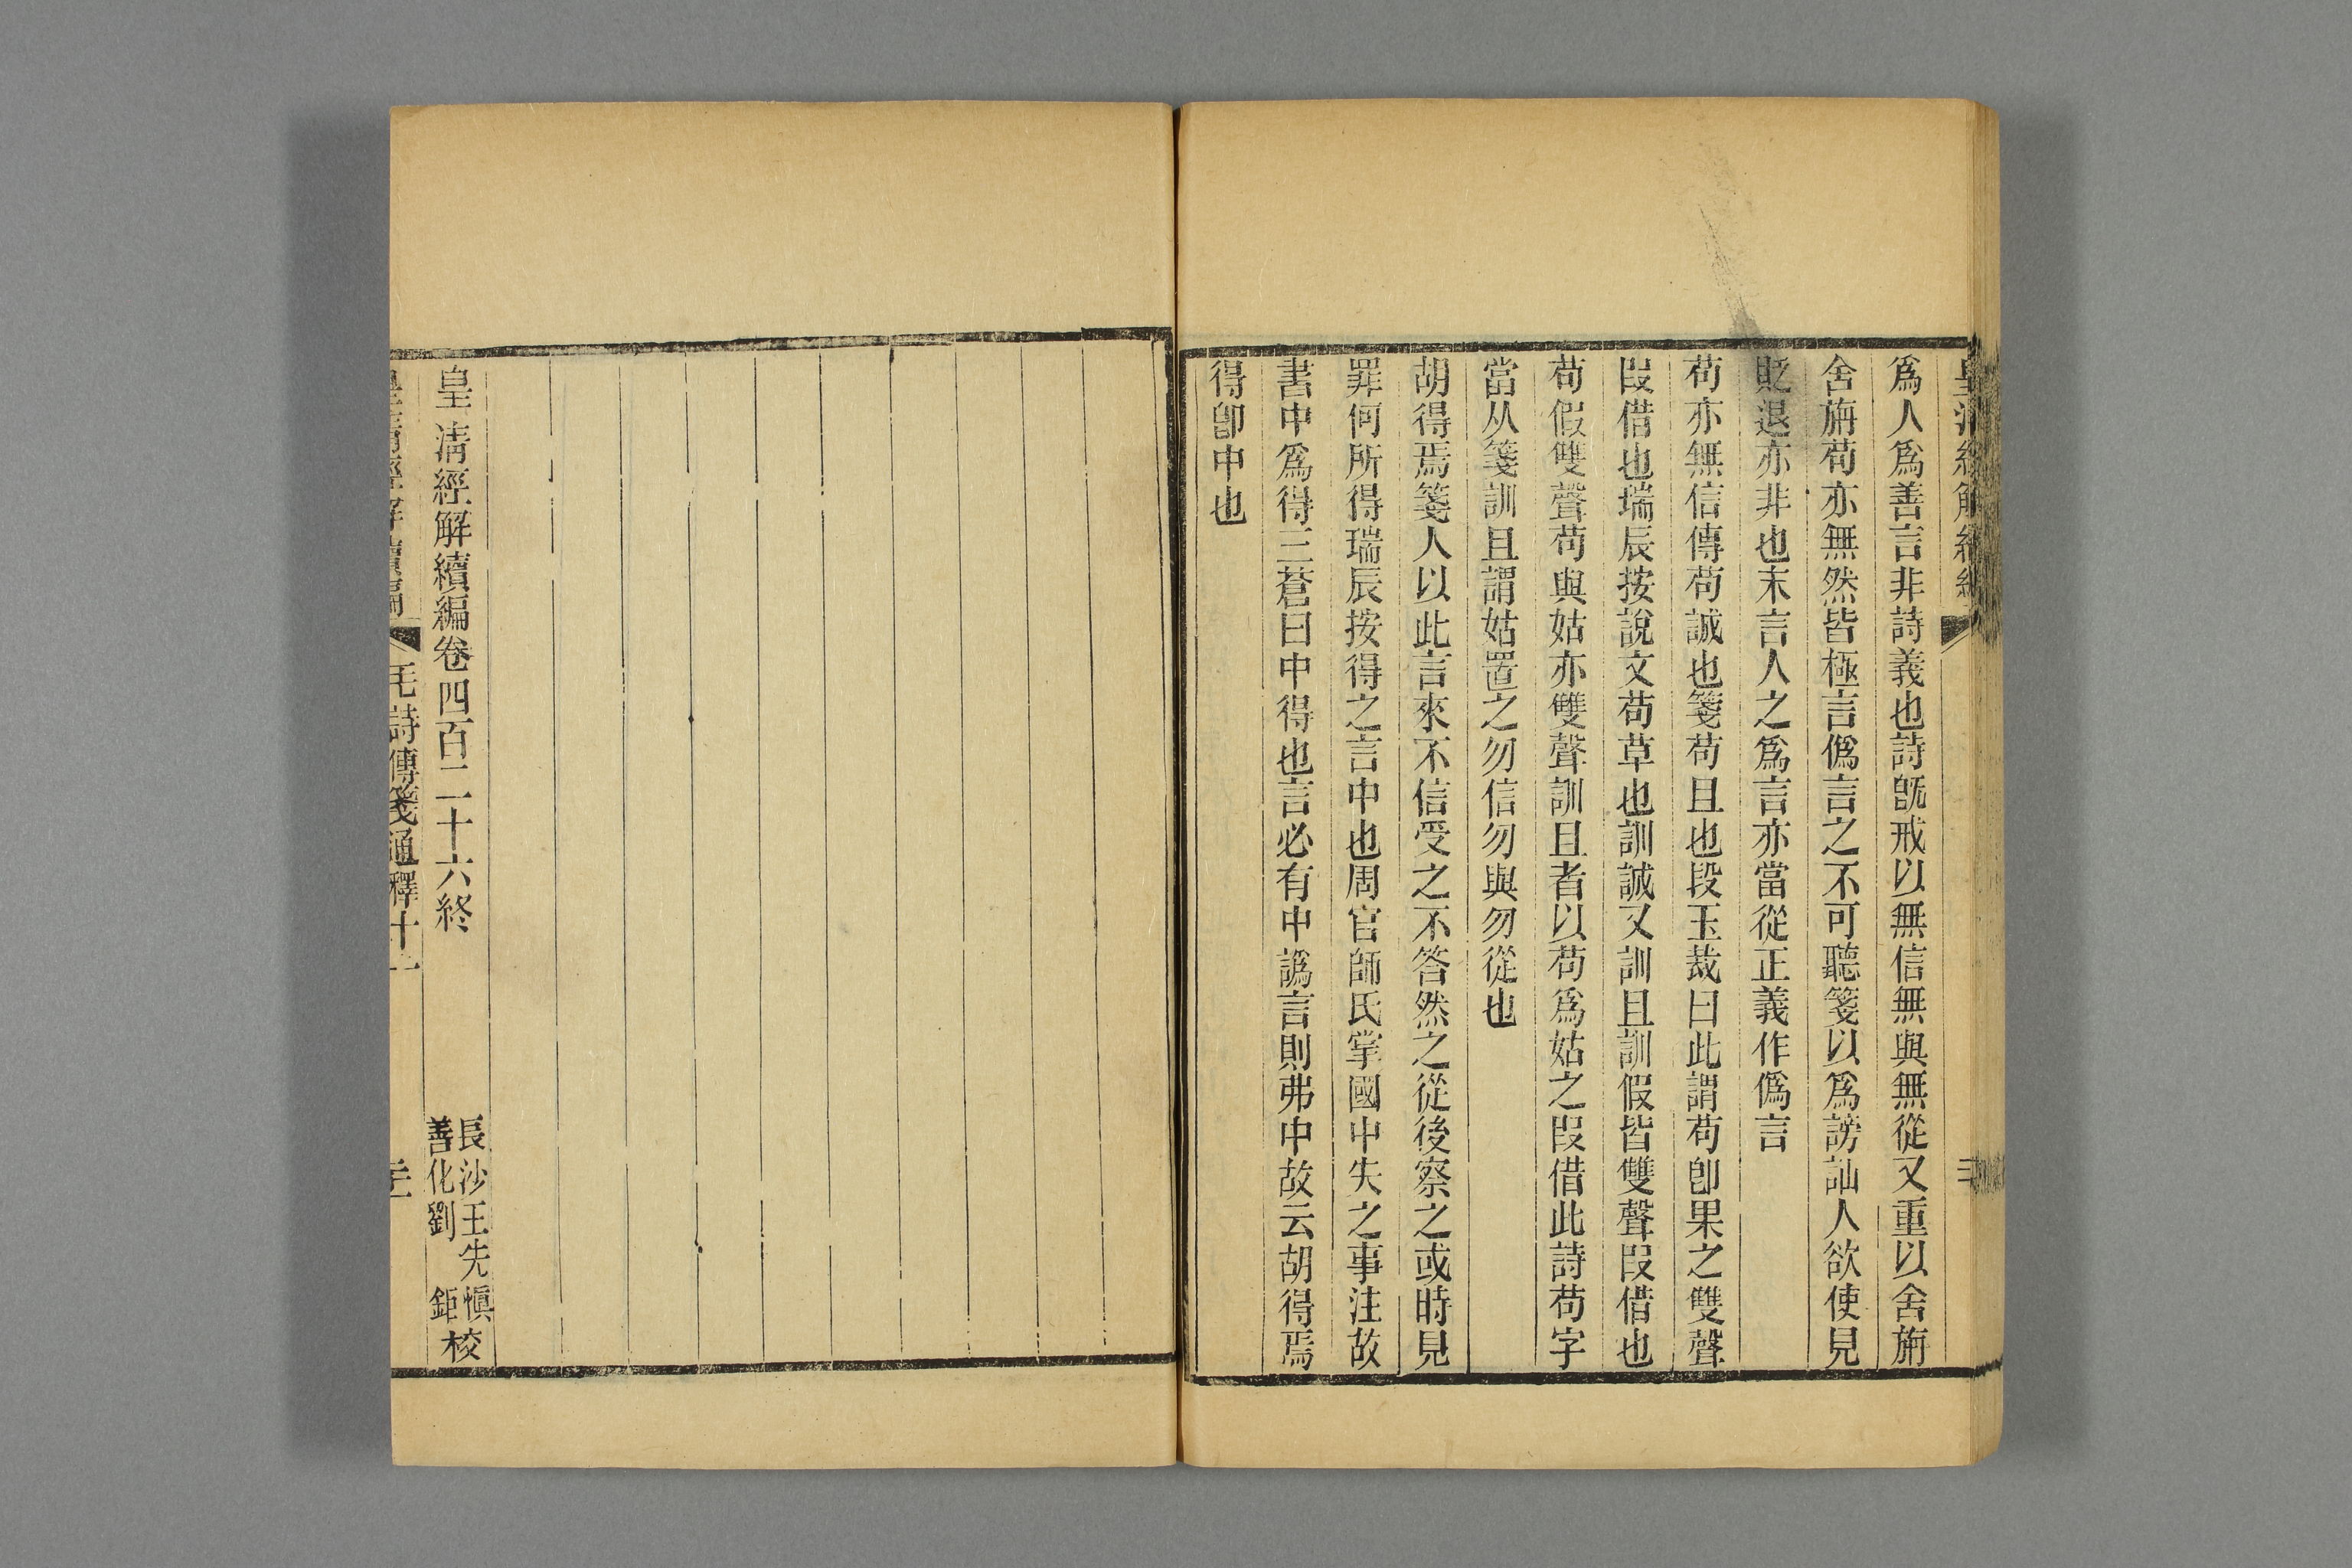 爲人爲善言非詩義也詩旣戒以無信無與無從又重以舍旃
舍旃苟亦無然皆極言僞言之不可聽箋以爲謗訕人欲使見
貶退亦非也末言人之爲言亦當從正義作僞言
苟亦無信傳苟誠也箋苟且也段玉裁曰此謂苟卽果之雙聲
叚借也瑞辰按說文苟草也訓誠又訓且訓假皆雙聲叚借也
苟假雙聲苟與姑亦雙聲訓且者以苟爲姑之叚借此詩苟字
當从箋訓且謂姑置之勿信勿與勿從也
胡得焉箋人以此言來不信受之不答然之從後察之或時見
罪何所得瑞辰按得之言中也周官師氏掌國中失之事注故
書中爲得三蒼曰中得也言必有中譌言則弗中故云胡得焉
得卽中也
皇淸經解續編卷四百二十六終
長沙王先愼
善化劉 鉅
校
毛詩傳箋通釋十一